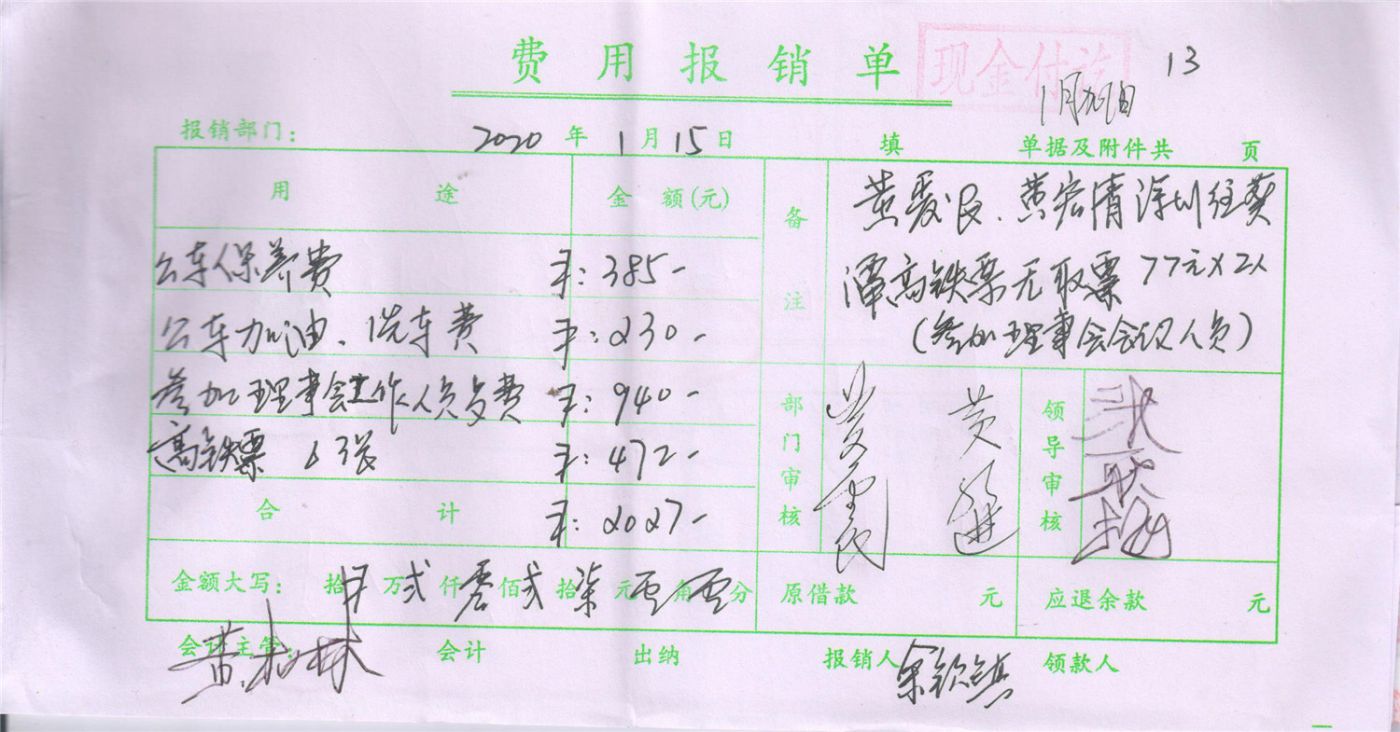 费用报销单
现金付讫
13
报销部门： 2020年1月15日 填 单据及附件共 页
用途 金额(元) 备注
黄爱民、黄宏清深圳往葵
潭高铁票无取票77元×2人
(参加理事会会议人员)
公车保养费 ¥：385-
公车加油、洗车费 ¥：230-
参加理事会工作人员 费 ¥：940-
高铁票 3张 ¥：472-
合计 ¥：2027-
部门审核 领导审核
金额大写： 拾 万贰仟零佰贰拾柒元零角零分 原借款 元 应退余款 元
会计主管： 会计 出纳 报销人 余钦镇 领款人